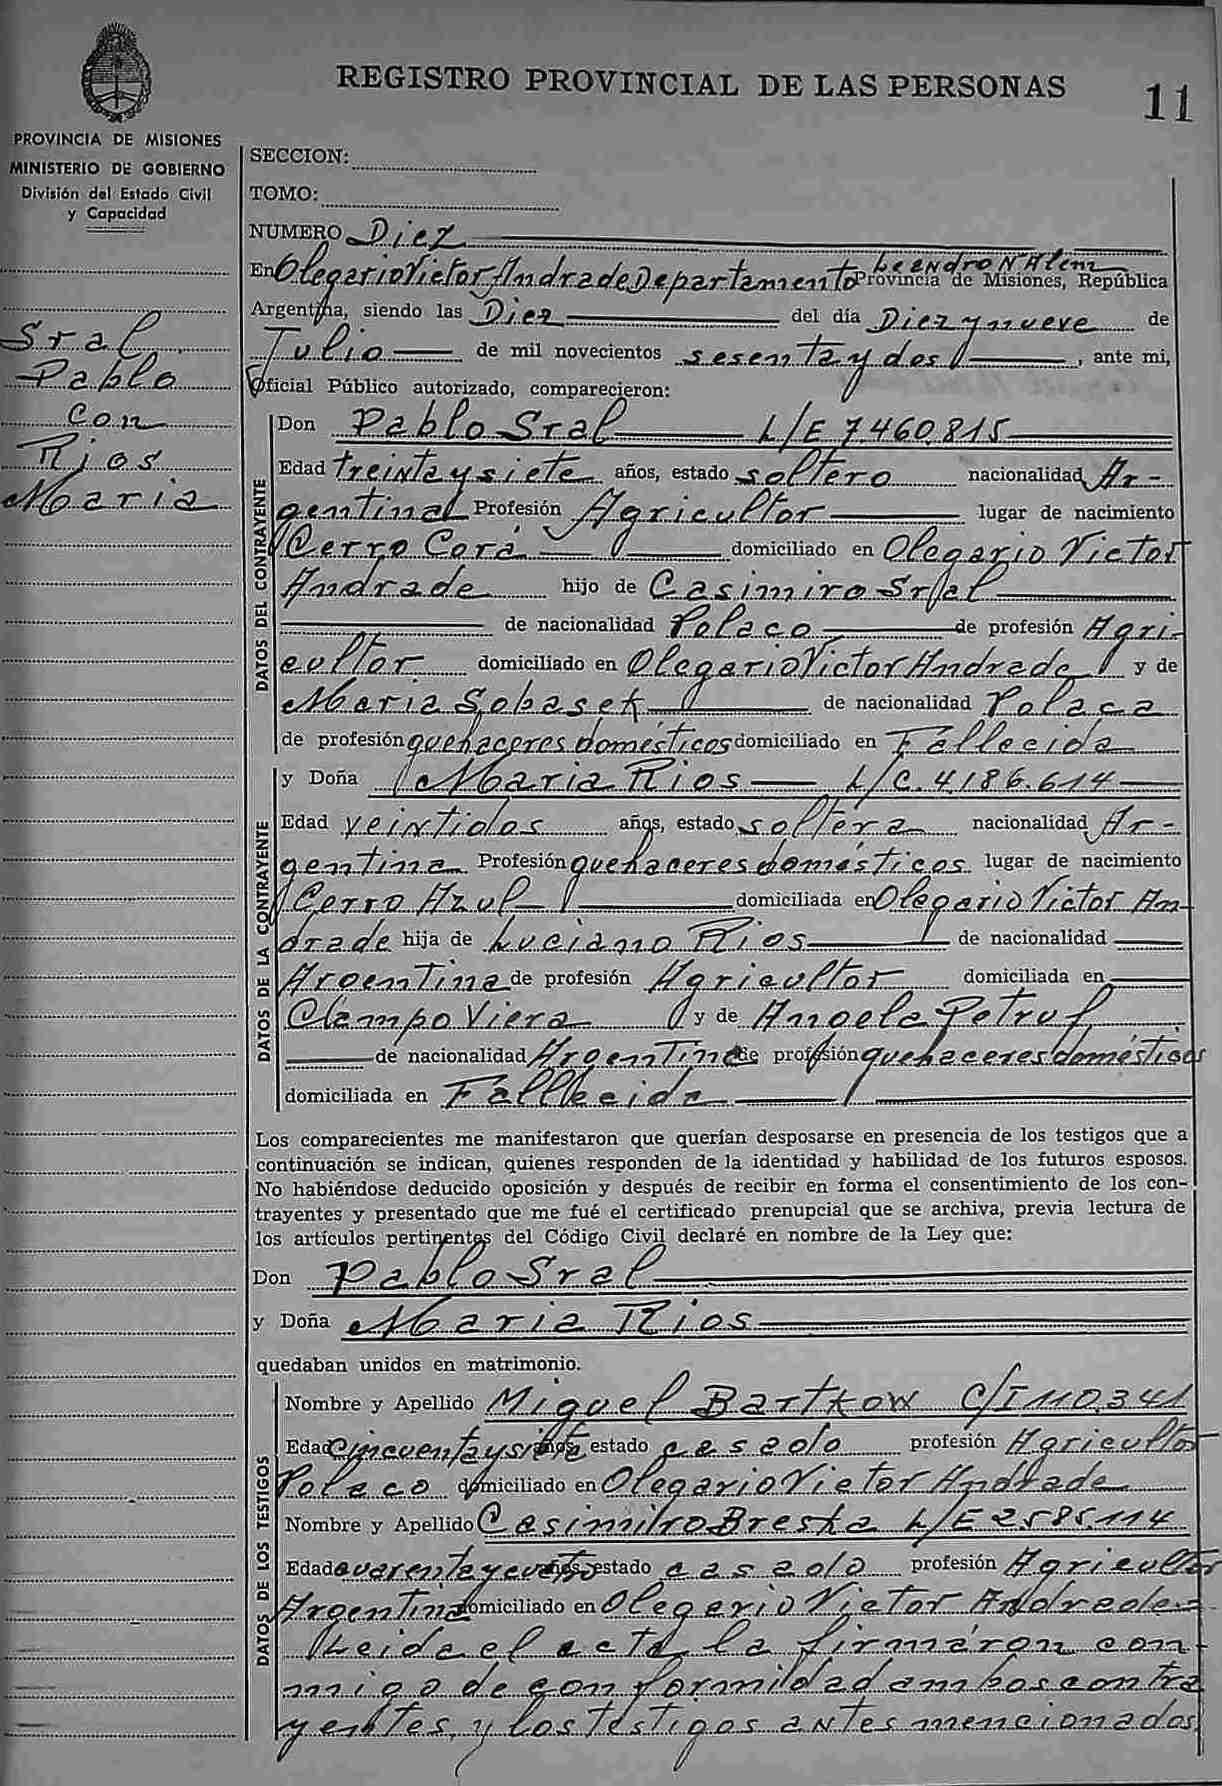 REGISTRO PROVINCIAL DE LAS PERSONAS
11
PROVINCIA DE MISIONES
MINISTERIO DE GOBIERNO
División del Estado Civil
y Capacidad
Sral
Pablo
con
Rios
Maria
SECCION:
TOMO:
NUMERO Diez
Leandro N Alem
En Olegario Victor Andrade Departamento Provincia de Misiones, República
Argentina, siendo las Diez del día Diez y nueve de
Julio de mil novecientos sesenta y dos, ante mi,
Oficial Público autorizado, comparecieron:
DATOS DEL CONTRAYENTE
Don Pablo Sral L/E 7.460.815
Edad treinta y siete años, estado soltero nacionalidad Ar-
gentina Profesión Agricultor lugar de nacimiento
Cerro Corá domiciliado en Olegario Victor
Andrade hijo de Casimiro Sral
de nacionalidad Polaco de profesión Agri-
cultor domiciliado en Olegario Victor Andrade y de
Maria Sobasek de nacionalidad Polaca
de profesión quehaceres domésticos domiciliado en Fallecida
DATOS DE LA CONTRAYENTE
y Doña Maria Rios L/C. 4.186.614
Edad veintidos años, estado soltera nacionalidad Ar-
gentina Profesión quehaceres domésticos lugar de nacimiento
Cerro Azul domiciliada en Olegario Victor An-
drade hija de Luciano Rios de nacionalidad
Argentina de profesión Agricultor domiciliada en
Campo Viera y de Angela Petruf
de nacionalidad Argentina de profesión quehaceres domésticos
domiciliada en Fallecida
Los comparecientes me manifestaron que querían desposarse en presencia de los testigos que a
continuación se indican, quienes responden de la identidad y habilidad de los futuros esposos.
No habiéndose deducido oposición y después de recibir en forma el consentimiento de los con-
trayentes y presentado que me fué el certificado prenupcial que se archiva, previa lectura de
los artículos pertinentes del Código Civil declaré en nombre de la Ley que:
Don Pablo Sral
y Doña Maria Rios
quedaban unidos en matrimonio.
DATOS DE LOS TESTIGOS
Nombre y Apellido Miguel Bartkow C/I 110.341
Edad cincuenta y siete años, estado casado profesión Agricultor
Polaco domiciliado en Olegario Victor Andrade
Nombre y Apellido Casimiro Breska L/E 2585.114
Edad cuarenta y cuatro años, estado casado profesión Agricultor
Argentina domiciliado en Olegario Victor Andrade.=
Leida el acta la firmaron con-
migo de conformidad ambos contra
yentes, y los testigos antes mencionados